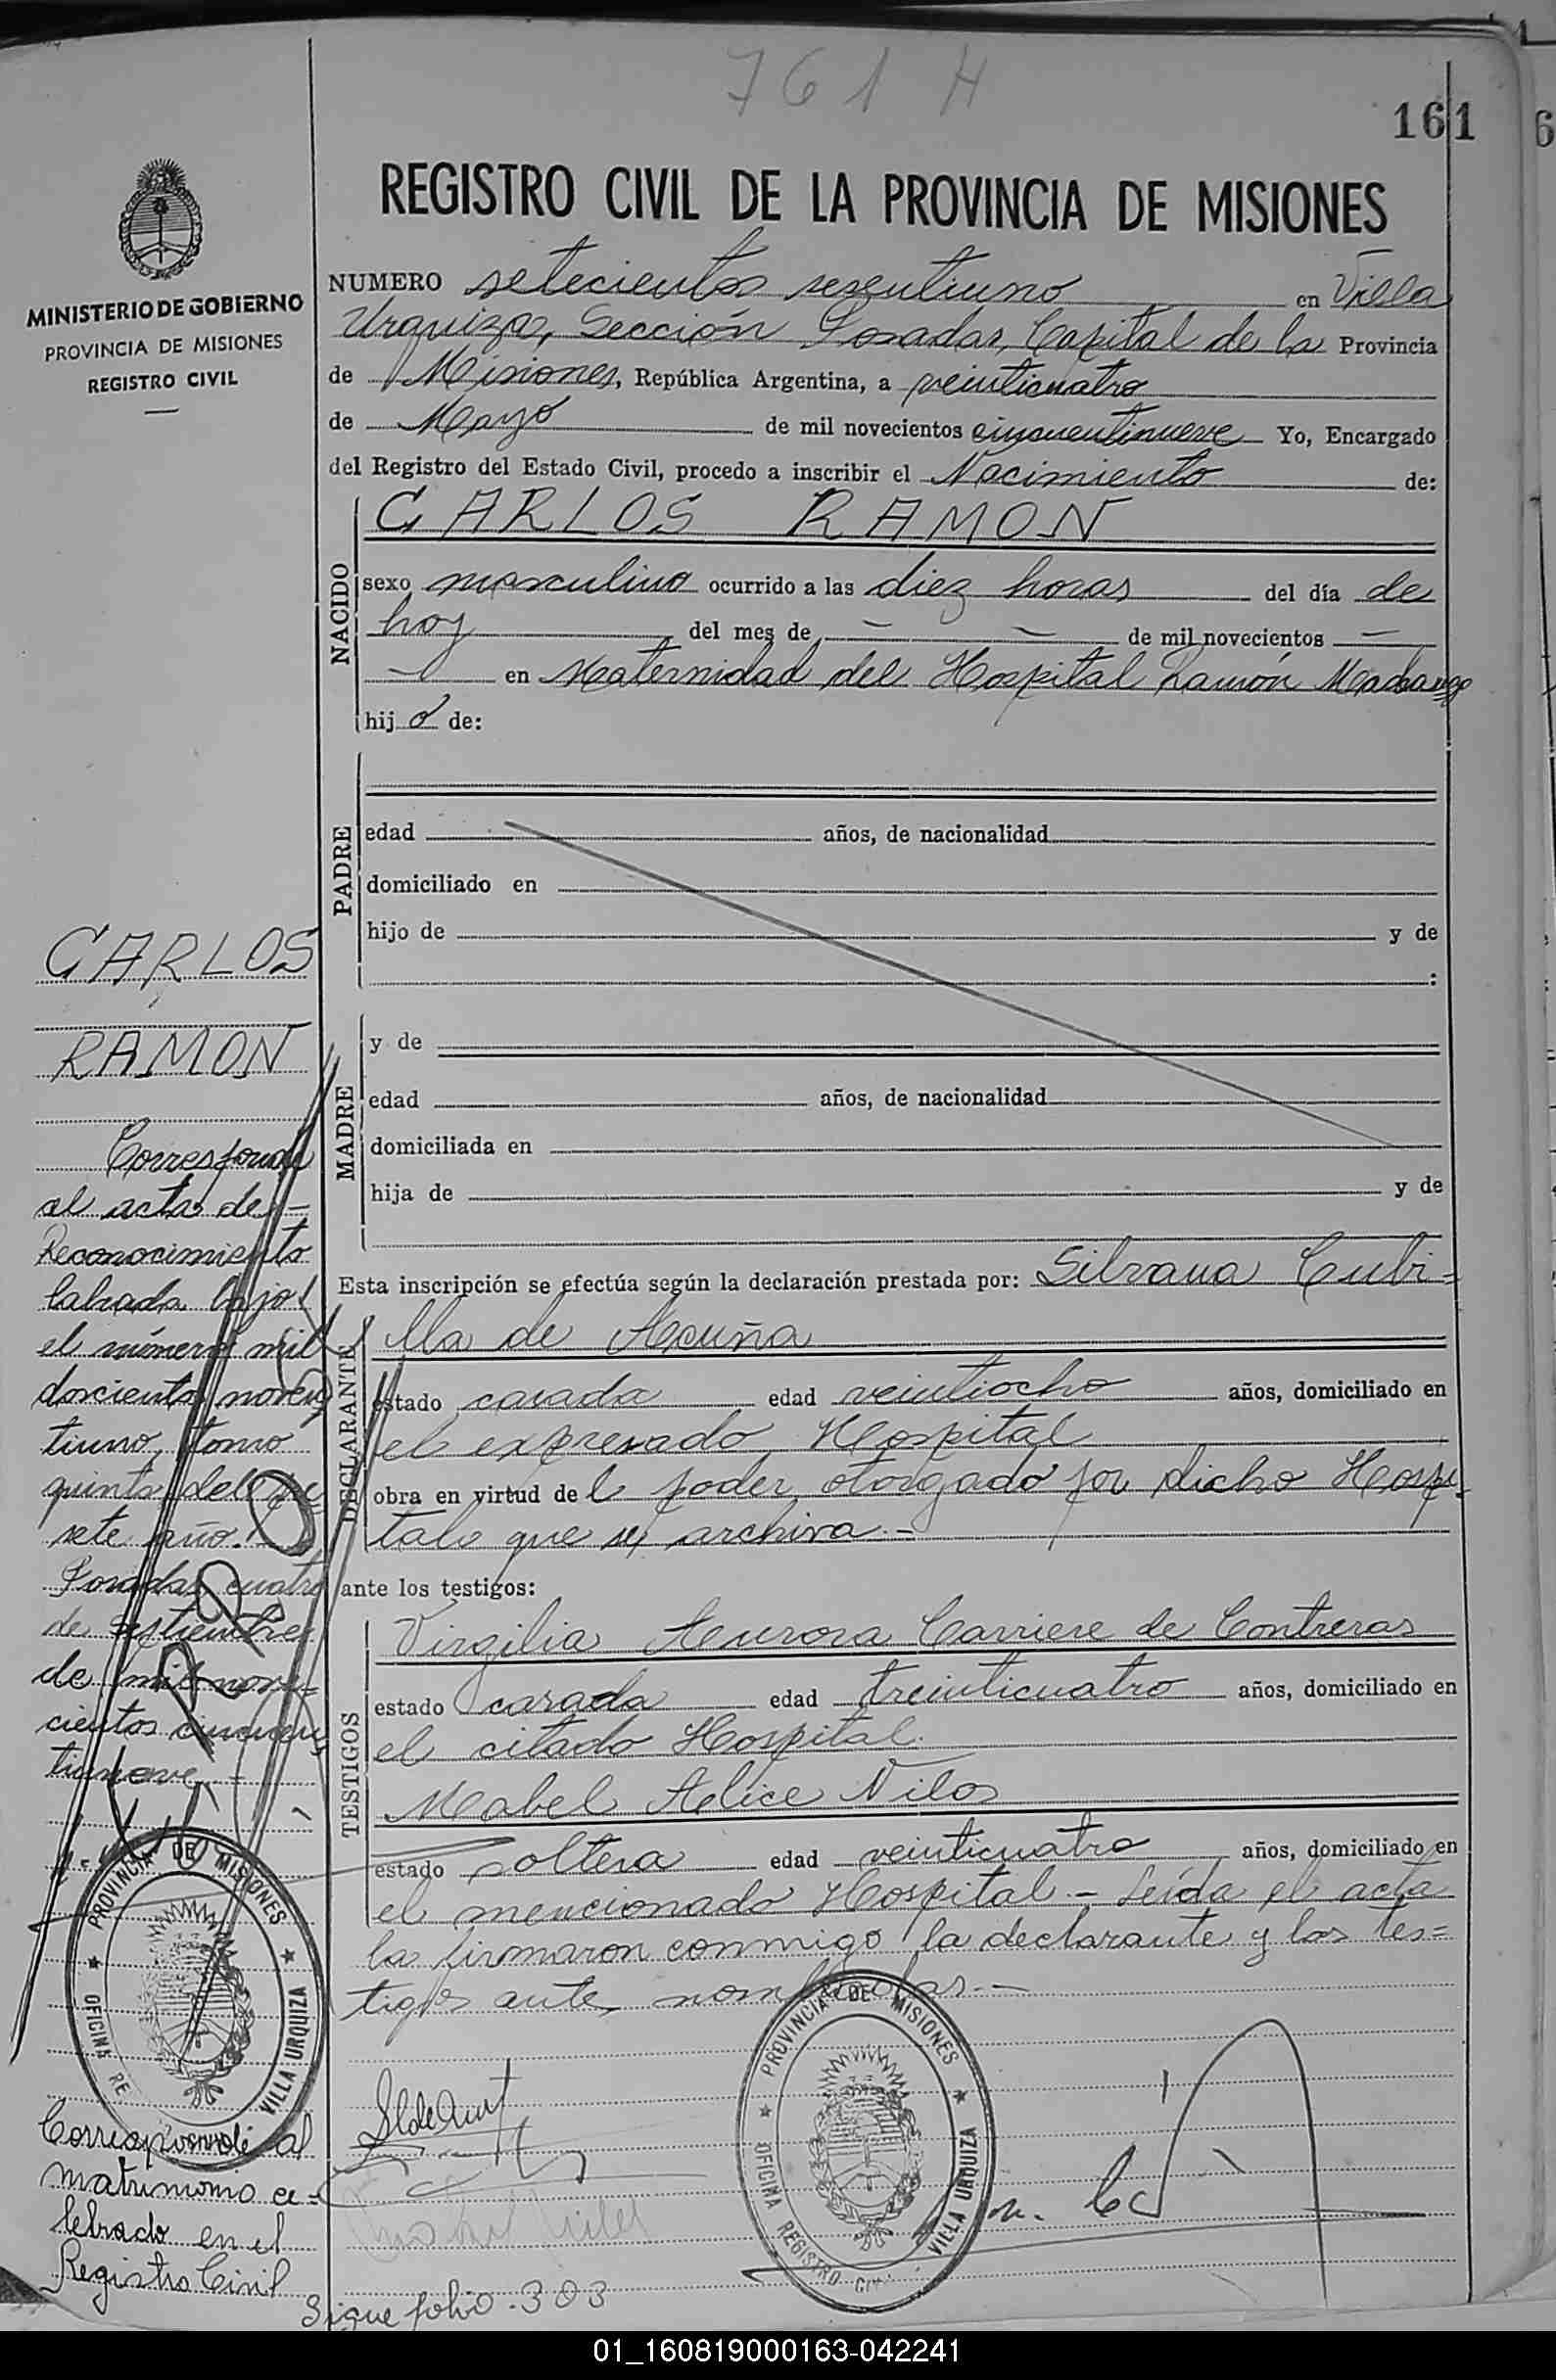 761 H
161
REGISTRO CIVIL DE LA PROVINCIA DE MISIONES
MINISTERIO DE GOBIERNO
PROVINCIA DE MISIONES
REGISTRO CIVIL
NUMERO setecientos sesentiuno en Villa
Urquiza, Sección Posadas, Capital de la Provincia
de Misiones, República Argentina, a veinticuatro
de Mayo de mil novecientos cincuentinueve Yo, Encargado
del Registro del Estado Civil, procedo a inscribir el Nacimiento de:
CARLOS RAMON
NACIDO
sexo masculino ocurrido a las diez horas del día de
hoy del mes de — — de mil novecientos —
— en Maternidad del Hospital Ramón Madariaga
hijo de:
PADRE
edad años, de nacionalidad
domiciliado en
hijo de y de
:
MADRE
y de
edad años, de nacionalidad
domiciliada en
hija de y de
Esta inscripción se efectúa según la declaración prestada por: Silvana Cubi=
lla de Acuña
DECLARANTE
estado casada edad veintiocho años, domiciliado en
el expresado Hospital
obra en virtud del poder otorgado por dicho Hospi-
tal que se archiva.-
ante los testigos:
TESTIGOS
Virgilia Aurora Carriere de Contreras
estado casada edad treinticuatro años, domiciliado en
el citado Hospital.
Mabel Alice Nilos
estado soltera edad veinticuatro años, domiciliado en
el mencionado Hospital - Leída el acta
la firmaron conmigo la declarante y las tes=
tigos ante nombradas.-
CARLOS
RAMON
Corresponde
al acta de -
Reconocimiento
labrada bajo
el número mil
doscientos noven
tiuno, tomo
quinto del pre
sete año.
Posadas, cuatro
de septiembre
de mil nove=
cientos cincuen
tinueve
PROVINCIA DE MISIONES
OFICINA RE
VILLA URQUIZA
PROVINCIA DE MISIONES
OFICINA REGISTRO CIVIL
VILLA URQUIZA
Corresponde al
matrimonio ce=
lebrado en el
Registro Civil
Sigue folio. 303
01_160819000163-042241